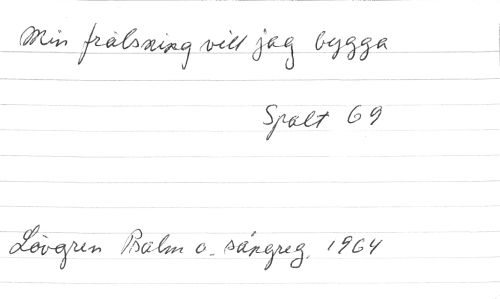 Min frälsning vill jag bygga
Spalt 69
Lövgren Psalm o. sångreg. 1964